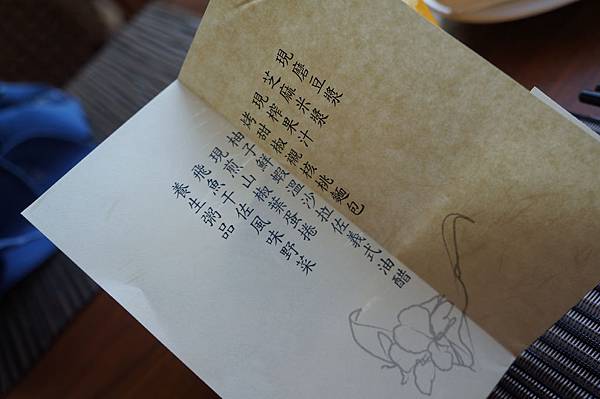 現磨豆漿
芝麻米漿
現榨果汁
烤甜椒襯核桃麵包
柚子鮮蝦溫沙拉佐義式油醋
現煎山椒葉蛋捲
飛魚干佐風味野菜
養生粥品